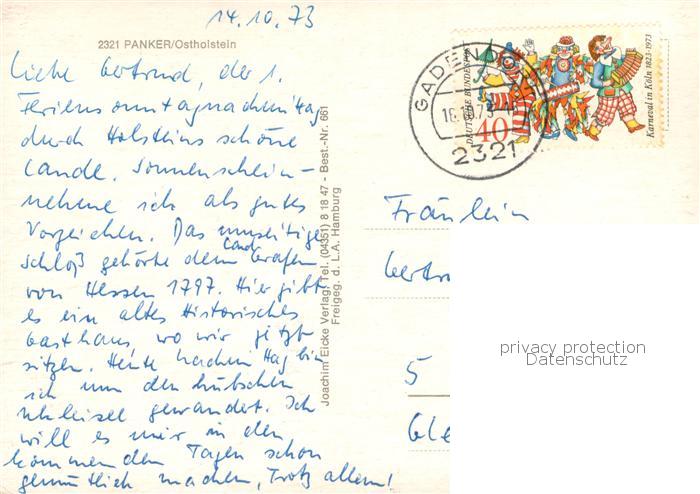 14.10.73
2321 PANKER/Ostholstein
Liebe Gertrud, der 1.
Feriensonntagnachmittag
durch Holsteins schöne
Lande. Sonnenschein-
nehme ich als gutes
Vorzeichen. Das umseitige
Schloß gehörte dem Landgrafen
von Hessen 1797. Hier gibt
es ein altes Historisches
Gasthaus, wo wir jetzt
sitzen. Heute nachmittag bin
ich um den hübschen
gewandert. Ich
will es mir in den
kommenden Tagen schon
gemütlich machen, Trotz allem!
Joachim Eicke Verlag, Tel. (04351) 8 18 47 - Best.-Nr. 661
Freigeg. d. L.A. Hamburg
DEUTSCHE BUNDESPOST
40
Karneval in Köln 1823-1973
2321
Fräulein
Gertr
5
privacy protection
Datenschutz